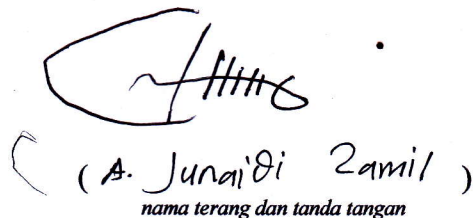 ( A. Junaidi Zamil )
nama terang dan tanda tangan